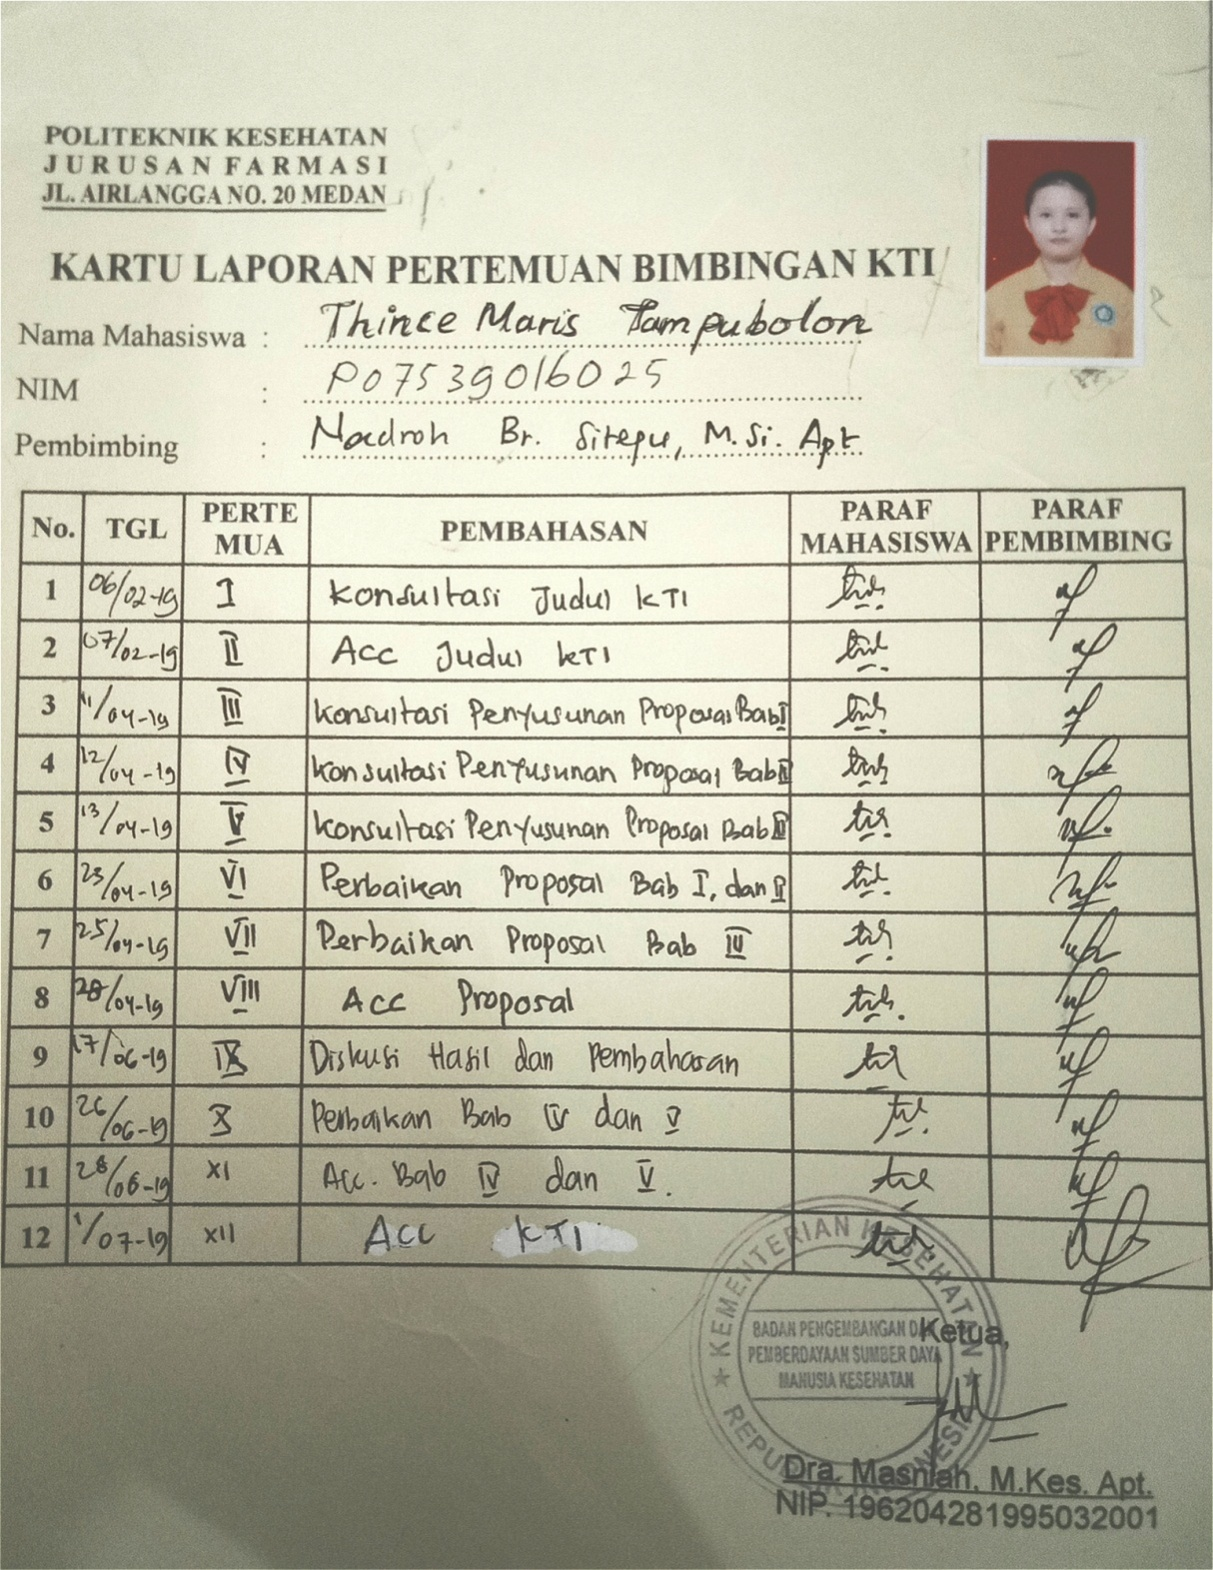 POLITEKNIK KESEHATAN
JURUSAN FARMASI
JL. AIRLANGGA NO. 20 MEDAN
KARTU LAPORAN PERTEMUAN BIMBINGAN KTI
Nama Mahasiswa : Thince Maris Tampubolon
NIM : P07539016025
Pembimbing : Nadroh Br. Sitepu, M.Si. Apt
No. TGL PERTE MUA PEMBAHASAN PARAF MAHASISWA PARAF PEMBIMBING
1 06/02-19 I Konsultasi Judul KTI
2 07/02-19 II Acc Judul KTI
3 11/04-19 III Konsultasi Penyusunan Proposal Bab I
4 12/04-19 IV Konsultasi Penyusunan Proposal Bab II
5 13/04-19 V Konsultasi Penyusunan Proposal Bab III
6 23/04-19 VI Perbaikan Proposal Bab I, dan II
7 25/04-19 VII Perbaikan Proposal Bab III
8 28/04-19 VIII Acc Proposal
9 17/06-19 IX Diskusi Hasil dan Pembahasan
10 26/06-19 X Perbaikan Bab IV dan V
11 28/06-19 XI Acc. Bab IV dan V.
12 1/07-19 XII Acc KTI
KEMENTERIAN KESEHATAN
BADAN PENGEMBANGAN DAN
PEMBERDAYAAN SUMBER DAYA
MANUSIA KESEHATAN
REPUBLIK INDONESIA
Ketua,
Dra. Masniah, M.Kes. Apt.
NIP. 196204281995032001